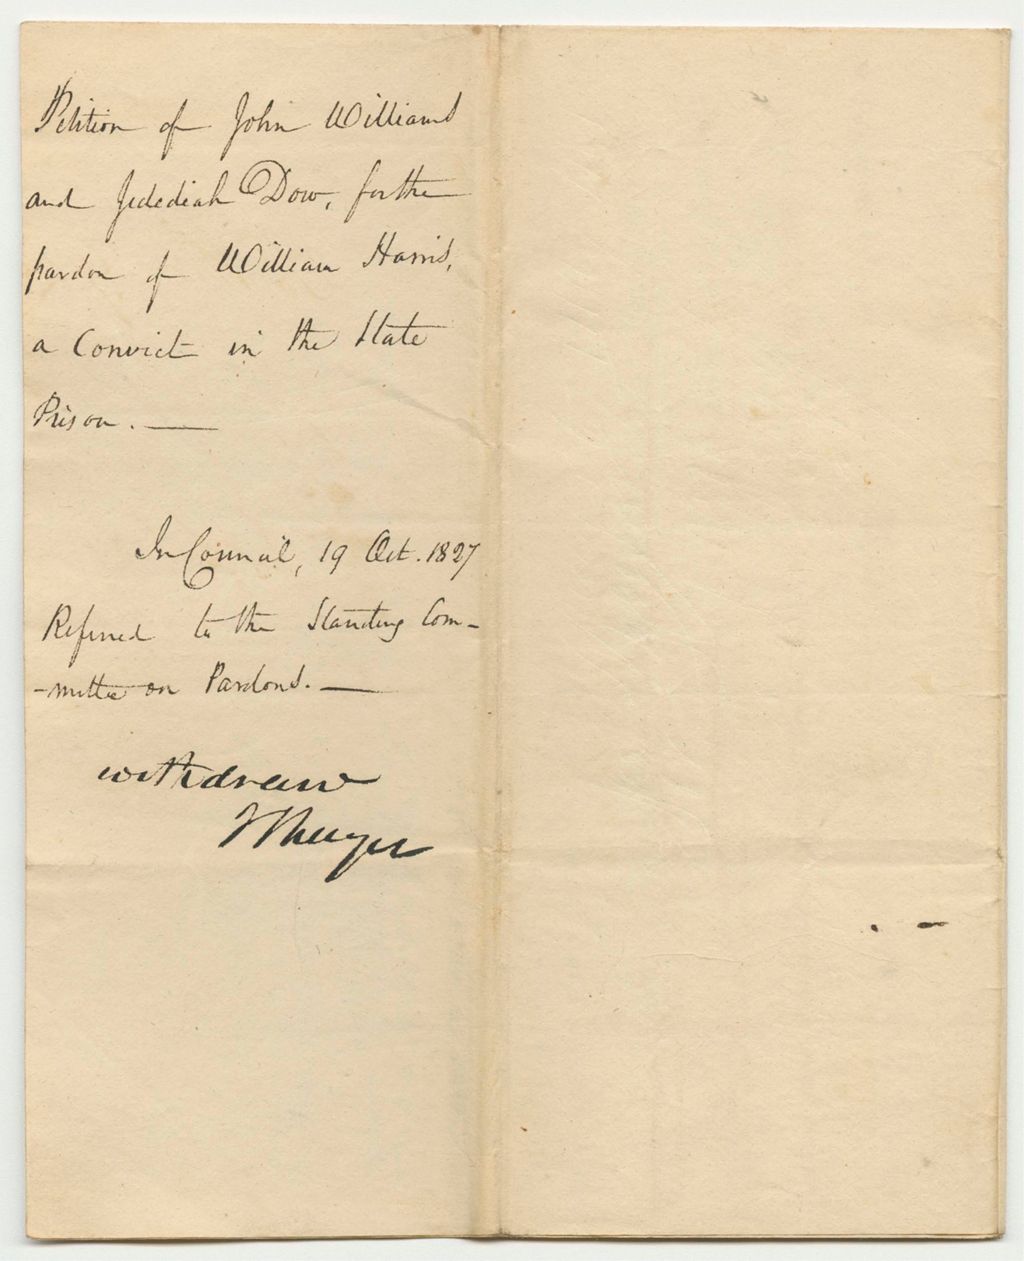 Petition of John Williams
and Jedediah Dow, for the
pardon of William Harris,
a Convict in the State
Prison. —
In Council, 19 Oct. 1827
Referred to the Standing Com-
-mittee on Pardons. —
withdrawn